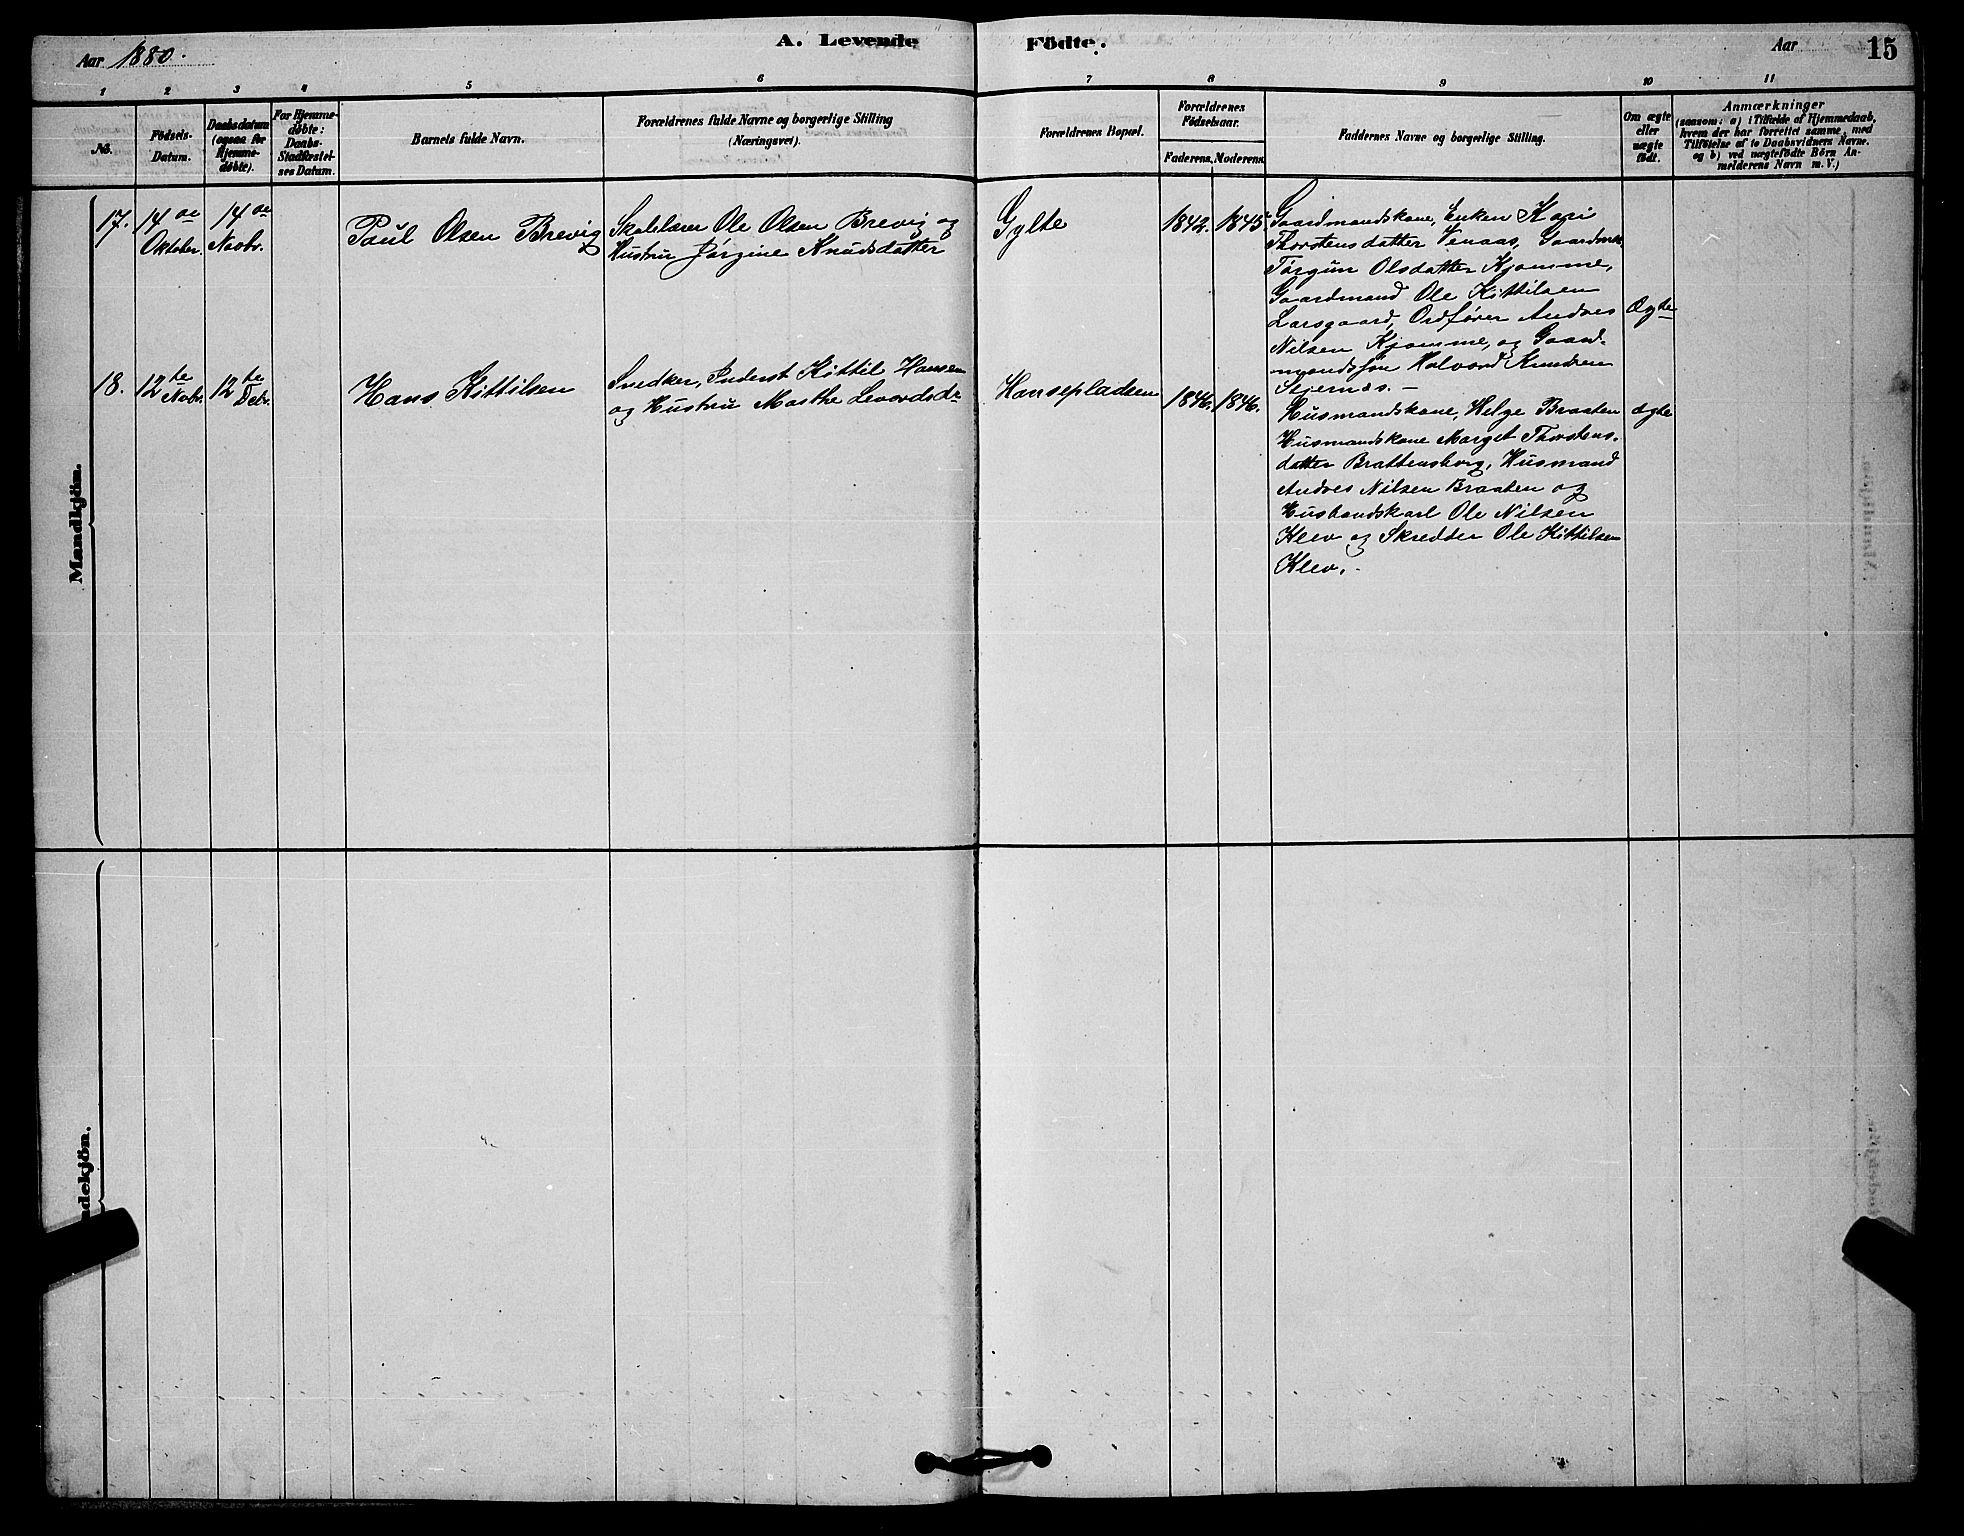 Aar 1880.
A. Levende
Födte.
Aar
15
1 2 3 4 5 6 7 8 9 10 11
No.
Födsels-
Datum.
Daabsdatum
(ogsaa for
Hjemme-
døbte).
For Hjemme-
døbte:
Daabs-
Stadfæstel-
ses Datum.
Barnets fulde Navn.
Forældrenes fulde Navne og borgerlige Stilling
(Næringsvei).
Forældrenes Bopæl.
Forældrenes
Födselsaar.
Faderens. Moderens.
Faddernes Navne og borgerlige Stilling.
Om ægte
eller
uægte
födt.
Anmærkninger
(saasom: a) i Tilfælde af Hjemmedaab,
hvem der har forrettet samme, med
Tilföielse af to Daabsvidners Navne.
og b) ved uægtefödte Börn An-
melderens Navn m. V.)
Mandkjön.
17.
14de
Oktober.
14de
Novbr.
Paul Olsen Brevig
Skolelærer Ole Olsen Brevig og
Hustru Jørgine Knudsdatter
Gylte
1842.
1845.
Gaardmandskone, Enken Kari
Thorstensdatter Venaas, Gaardmk.
Torgun Olsdatter Kjomme,
Gaardmand Ole Kittilsen
Larsgaard, Ordfører Andres
Nilsen Kjomme, og Gaard-
mandssøn Halvord Knudsen
Stjernes. -
Ægte
18.
12te
Novbr.
12te
Debr.
Hans Kittilsen
Snedker, Inderst Kittil Hansen
og Hustru Marthe Levordsdr
Hansepladsen
1846.
1846.
Husmandskone, Helge Braaten
Husmandskone Marget Thorstens-
datter Brattensborg, Husmand
Andres Nilsen Braaten og
Husbondskarl Ole Nilsen
Klev og Skredder Ole Kittilsen
Klev. -
ægte
ndekjön.